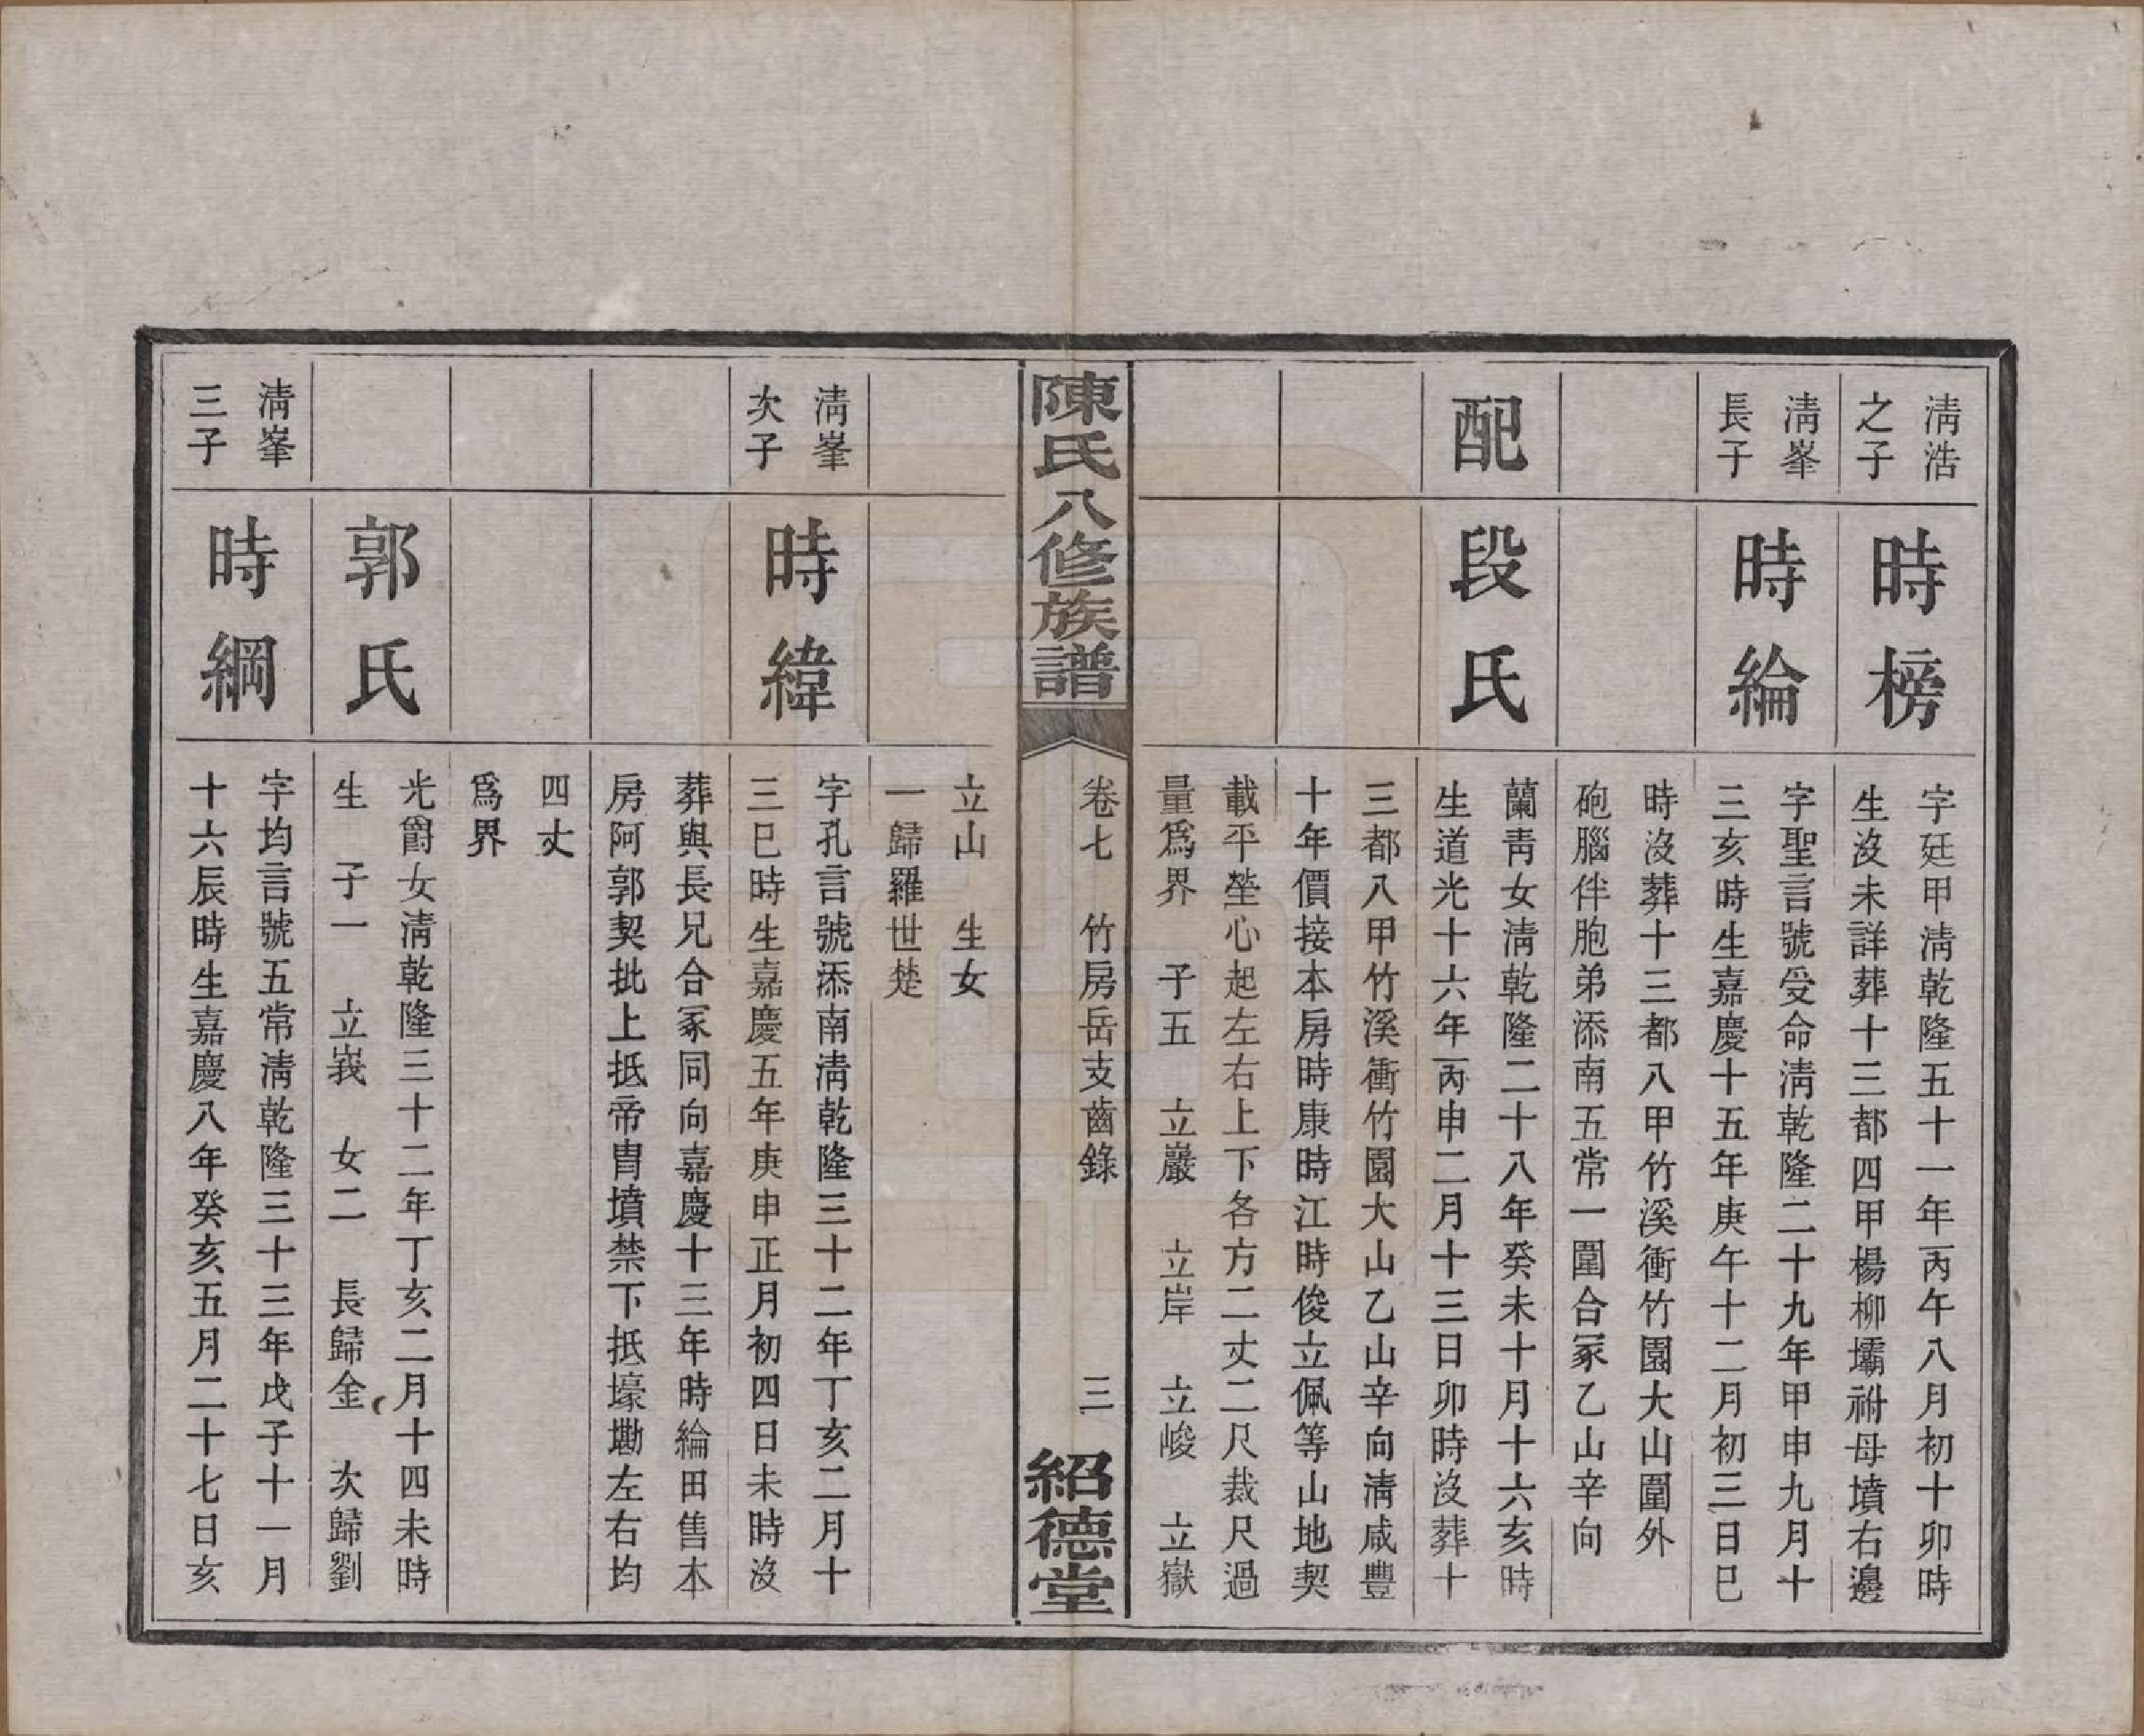 淸浩
之子
時榜
字廷甲淸乾隆五十一年丙午八月初十卯時
生沒未詳葬十三都四甲楊柳壩祔母墳右邊
淸峯
長子
時綸
字聖言號受命淸乾隆二十九年甲申九月十
三亥時生嘉慶十五年庚午十二月初三日巳
時沒葬十三都八甲竹溪衝竹園大山圍外
砲腦伴胞弟添南五常一圍合冢乙山辛向
配
段氏
蘭靑女淸乾隆二十八年癸未十月十六亥時
生道光十六年丙申二月十三日卯時沒葬十
三都八甲竹溪衝竹園大山乙山辛向淸咸豐
十年價接本房時康時江時俊立佩等山地契
載平塋心起左右上下各方二丈二尺裁尺過
量爲界 子五 立巖 立岸 立峻 立嶽
陳氏八修族譜
卷七 竹房岳支齒錄 三
紹德堂
立山 生女
一歸羅世楚
淸峯
次子
時緯
字孔言號添南淸乾隆三十二年丁亥二月十
三巳時生嘉慶五年庚申正月初四日未時沒
葬與長兄合冢同向嘉慶十三年時綸田售本
房阿郭契批上抵帝胄墳禁下抵壕墈左右均
四丈
爲界
郭氏
光爵女淸乾隆三十二年丁亥二月十四未時
生 子一 立峩 女二 長歸金 次歸劉
淸峯
三子
時綱
字均言號五常淸乾隆三十三年戊子十一月
十六辰時生嘉慶八年癸亥五月二十七日亥